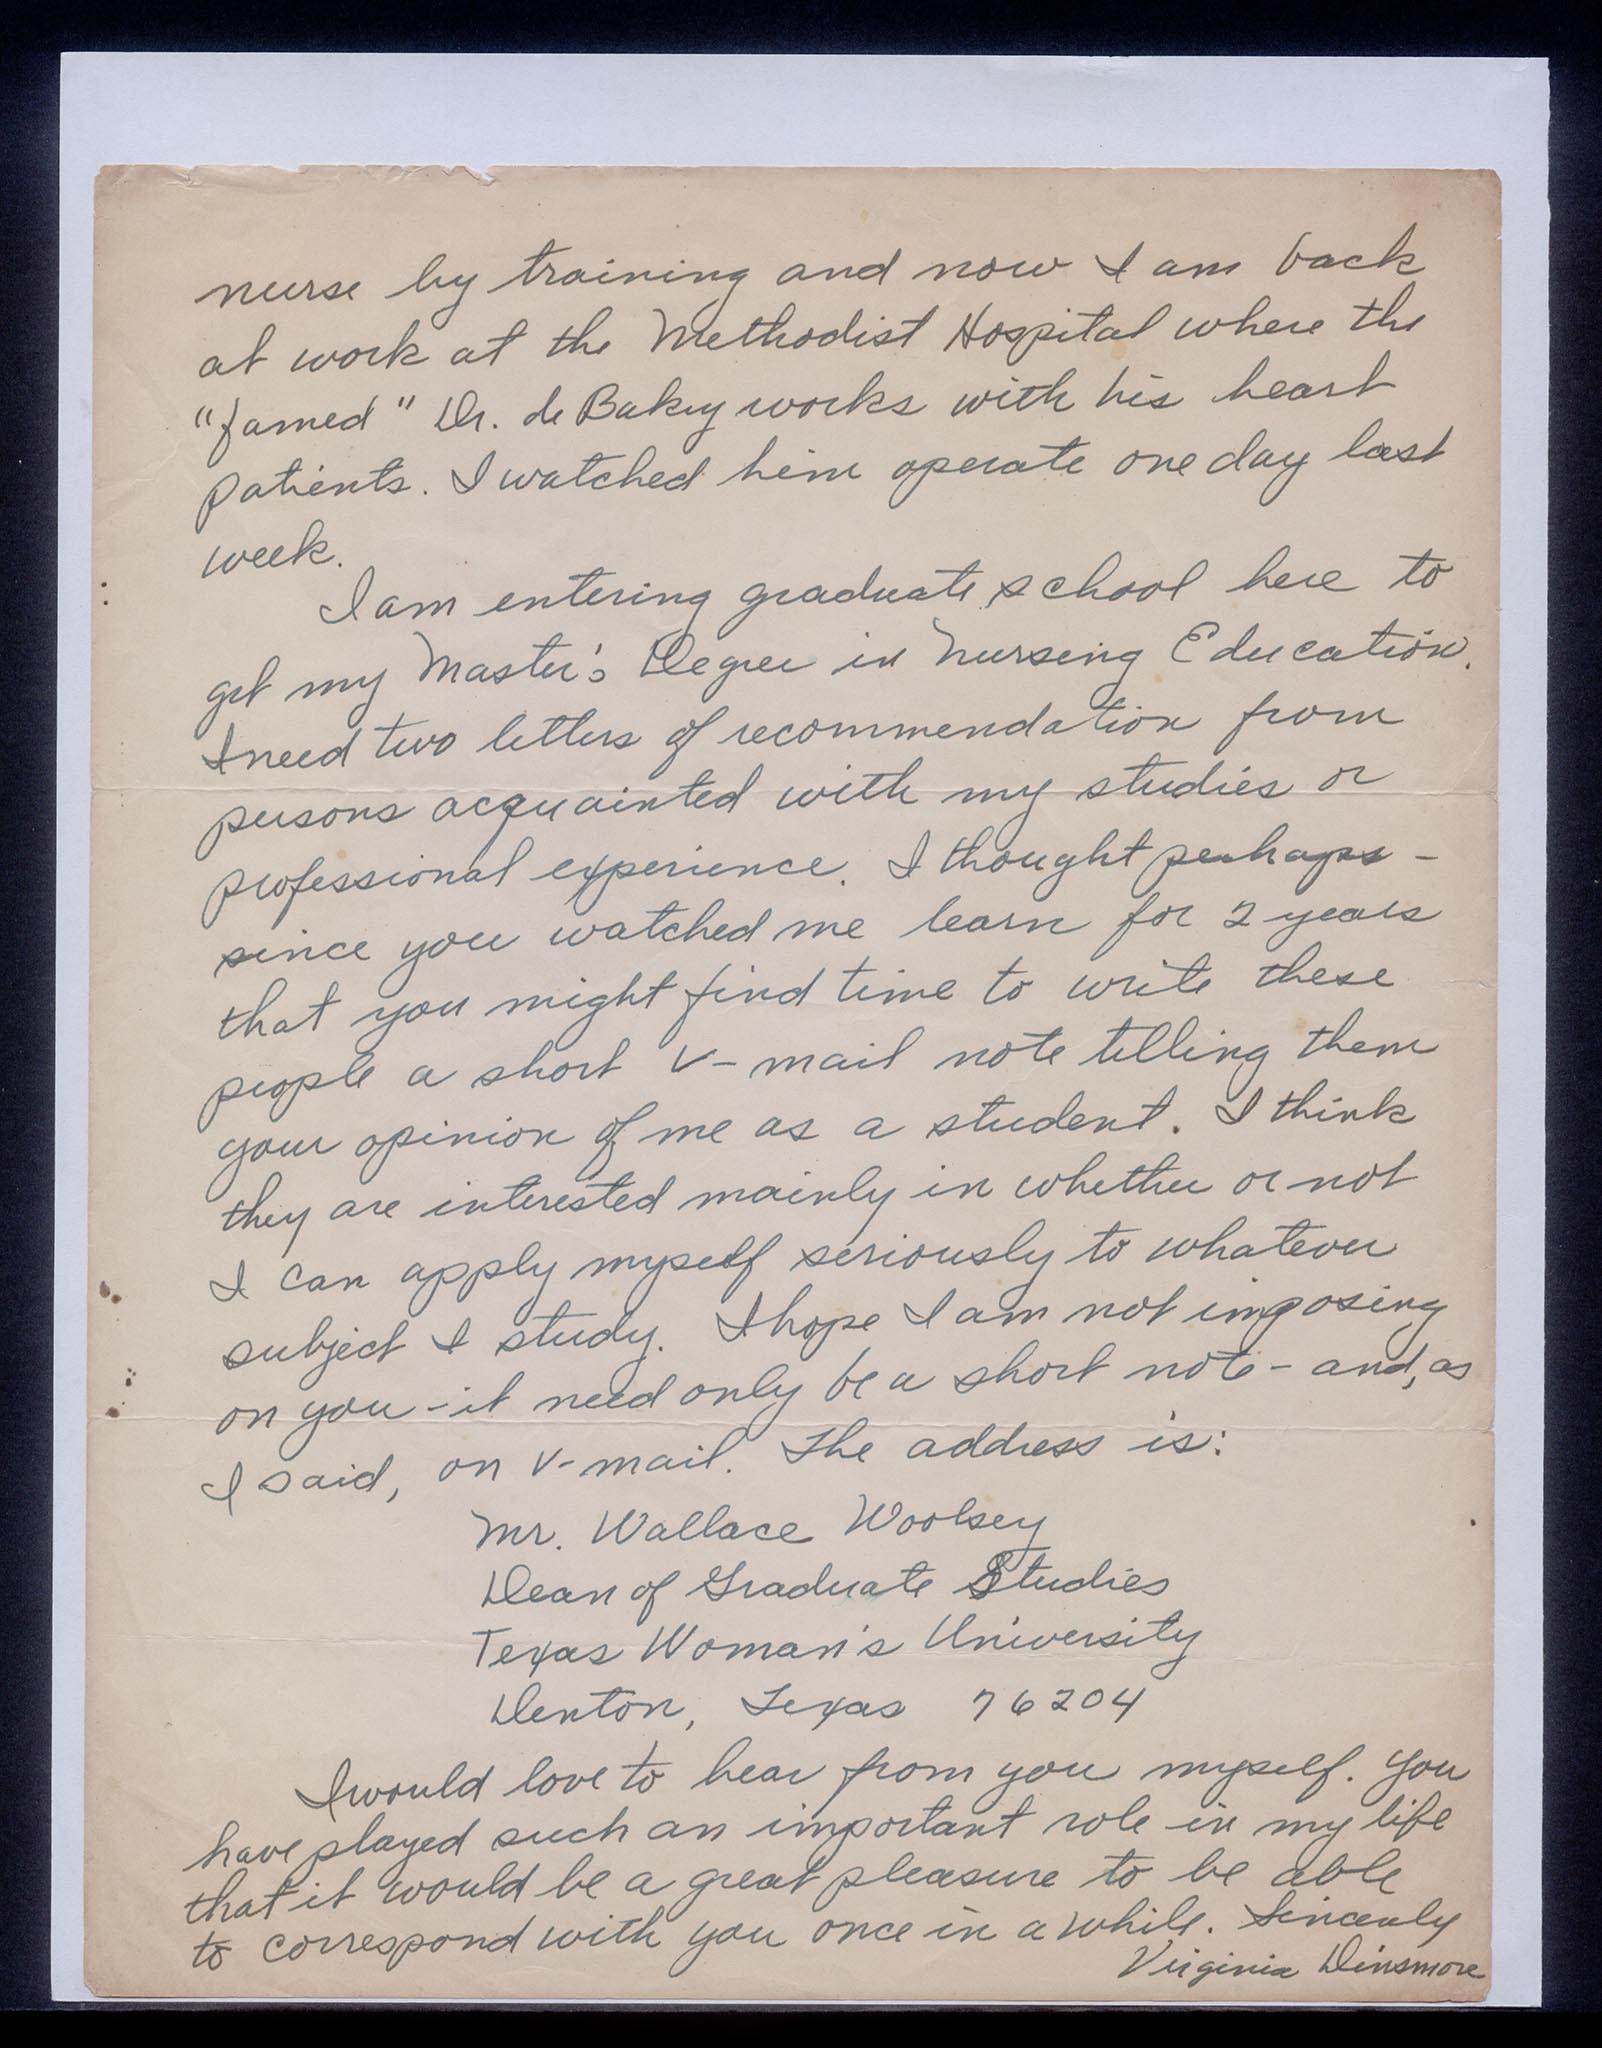 nurse by training and now I am back
at work at the Methodist Hospital where the
"famed" Dr. de Bakey works with his heart
patients. I watched him operate one day last
week.
I am entering graduate school here to
get my Master's Degree in Nursing Education.
I need two letters of recommendation from
persons acquainted with my studies or
professional experience. I thought perhaps -
since you watched me learn for 2 years
that you might find time to write these
people a short V-mail note telling them
your opinion of me as a student. I think
they are interested mainly in whether or not
I can apply myself seriously to whatever
subject I study. I hope I am not imposing
on you - it need only be a short note - and, as
I said, on V-mail. The address is:
Mr. Wallace Woolsey
Dean of Graduate Studies
Texas Woman's University
Denton, Texas 76204
I would love to hear from you myself. You
have played such an important role in my life
that it would be a great pleasure to be able
to correspond with you once in a while. Sincerely
Virginia Dinsmore